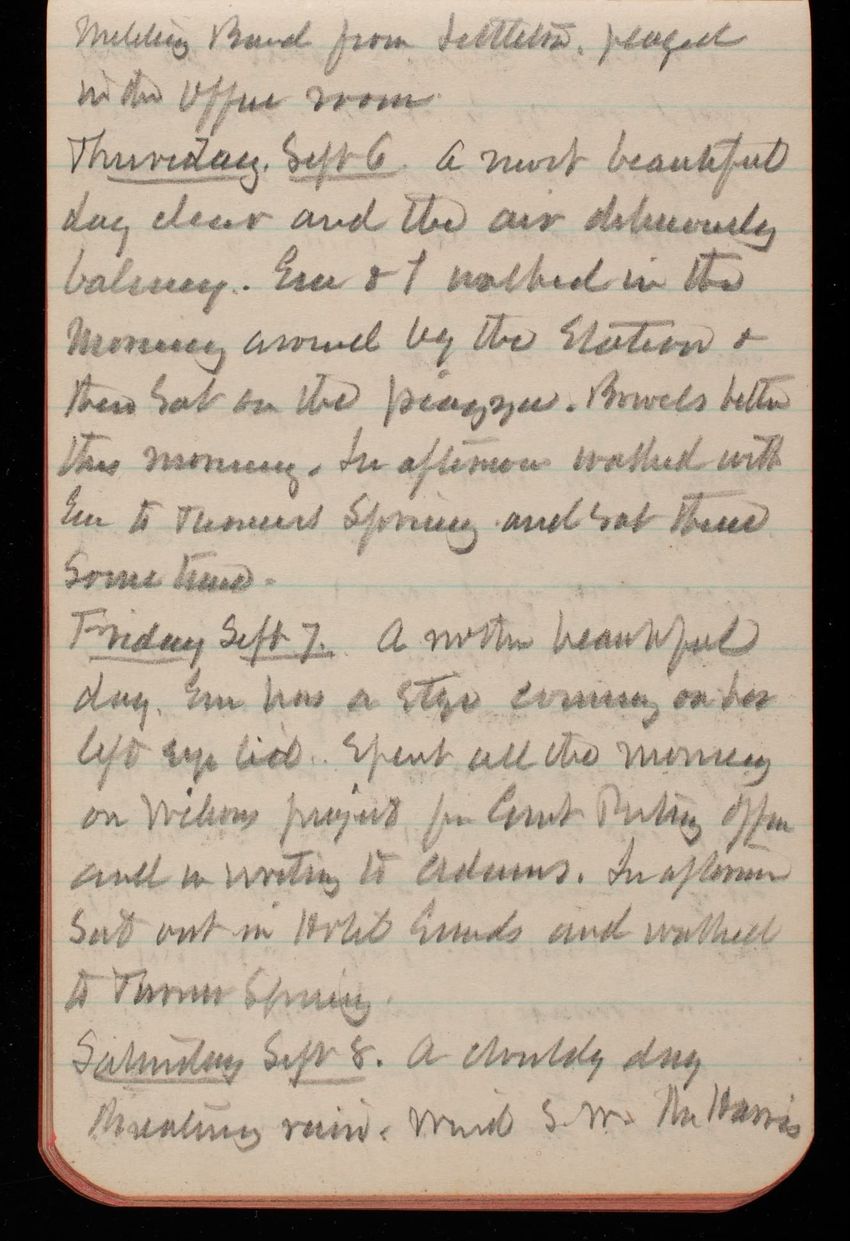 Band from Littleton. played
in the office room
Thursday. Sept 6. A most beautiful
day clear and the air deliciously
balmy. Em & I walked in the
morning around by the Station &
then sat on the piazza. Bowels better
this morning. In afternoon walked with
Em to Turners Spring and sat there
some time.
Friday Sept 7. A nother beautiful
day. Em has a stye coming on her
left eye lid. Spent all the morning
on Wilsons project for Govt Printing Office
and in writing to Adams. In afternoon
Sat out in Hotel Grounds and walked
to Turner Spring.
Saturday Sept 8. A cloudy day
threatening rain. Wind S.W. The Harris